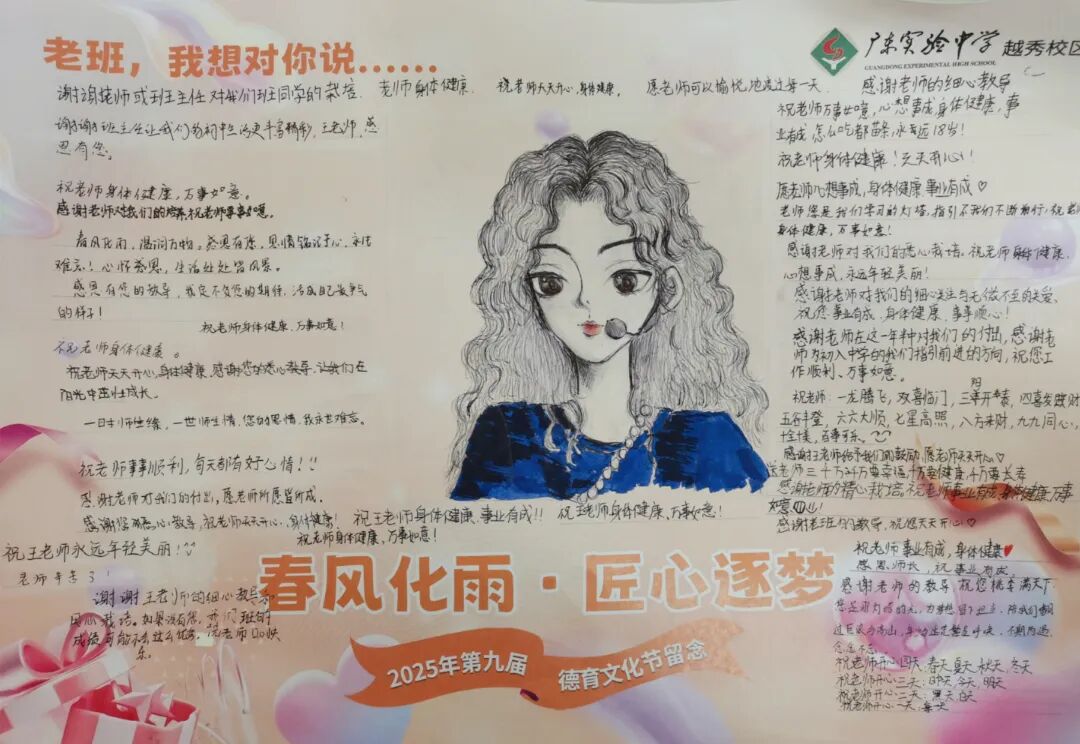 老班，我想对你说......
广东实验中学 越秀校区
GUANGDONG EXPERIMENTAL HIGH SCHOOL
谢谢老师或班主任对我们班同学的栽培.
老师身体健康.
祝老师天天开心,身体健康,
愿老师可以愉悦地度过每一天.
谢谢班主任让我们的初中生活更丰富精彩,王老师,感
恩有您。
祝老师身体健康,万事如意。
感谢老师对我们的培养,祝老师事事如意.
春风化雨,温润万物。感恩有虑,恩情铭记于心,永生
难忘!心怀感恩,生活处处皆风景。
感恩有您的教导,我定不负您的期待,活成自己最
的样子!
祝老师身体健康、万事如意!
祝老师身体健康。
祝老师天天开心,身体健康,感谢您的悉心教导,让我们在
阳光中茁壮成长。
一日师缘,一世师生情,您的恩情,我永世难忘。
祝老师事事顺利,每天都有好心情!!
感谢老师对我们的付出,愿老师所愿皆所成.
感谢您悉心教导,祝老师天天开心,身体健康!
祝王老师身体健康、事业有成!!
祝王老师身体健康、万事如意!
祝老师身体健康、万事如意!
祝王老师永远年轻美丽!
老师辛苦了!
谢谢王老师的细心教导和
用心栽培。如果没有您,我们班的
成绩可能不会这么优秀,祝老师日日快
乐。
感谢老师的细心教导
祝老师万事如意,心想事成,身体健康,事
业有成,怎么吃都苗条,永远18岁!
祝老师身体健康!天天开心!
愿老师心想事成,身体健康 事业有成♡
老师您是我们学习的灯塔,指引了我们不断前行,祝老师
身体健康,万事如意!
感谢老师对我们的悉心栽培。祝老师身体健康,
心想事成,永远年轻美丽!
感谢老师对我们的细心关注与无微不至的关爱,
祝您事业有成、身体健康、事事顺心!
感谢老师在这一年中对我们的付出,感谢老
师为初入中学的我们指引前进的方向,祝您工
作顺利、万事如意。
祝老师:一龙腾飞,双喜临门,三羊开泰,四喜发财
五谷丰登,六六大顺,七星高照,八方来财,九九同心,
十全十美,百事可乐。
感谢王老师给予我们的鼓励,愿老师天天开心♡
老师三千万幸福,千万要健康,千万要长寿
感谢老师的精心栽培,祝老师事业有成,身体健康,万事
如意
感谢老班的教导,祝您天天开心♡
祝老师事业有成,身体健康
感恩师长,祝事业有成
感谢老师的教导 祝您桃李满天下
祝老师开心四天:春天,夏天,秋天,冬天
祝老师开心三天:昨天,今天,明天
祝老师开心二天:黑天,白天
祝老师开心一天:每一天
春风化雨·匠心逐梦
2025年第九届 德育文化节留念